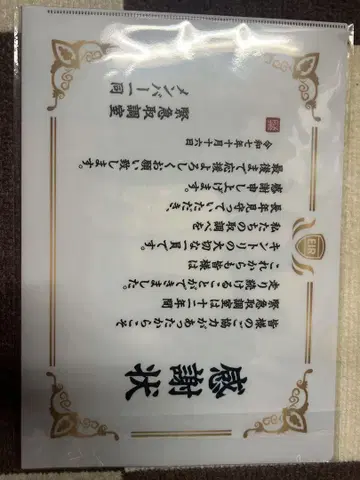 感謝状
皆様のご協力があったからこそ
緊急取調室は十二年間
走り続けることができました。
これからも皆様は
キントリの大切な一員です。
私たちの取調べを
長年見守っていただき、
感謝申し上げます。
最後まで応援よろしくお願い致します。
令和七年十月十六日
緊急取調室
メンバー一同
EIR